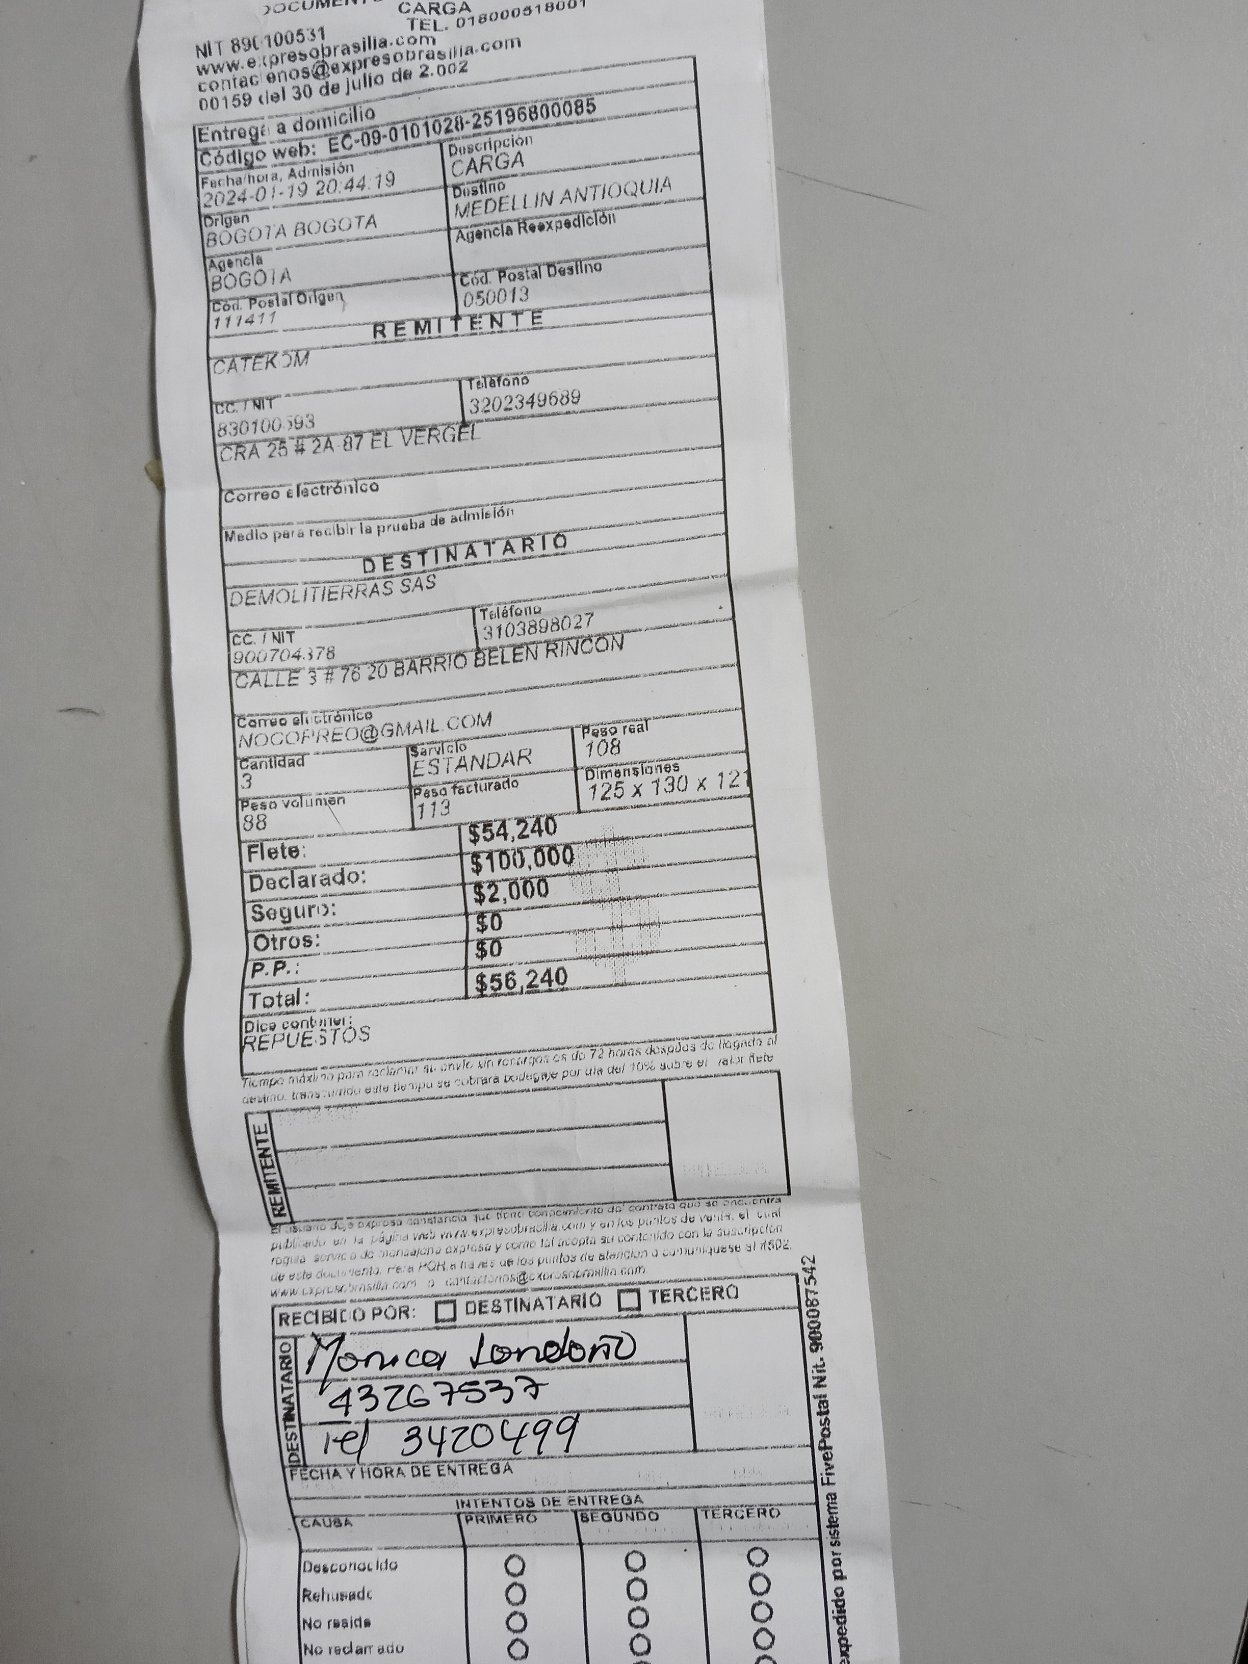 CARGA
TEL. 018000518001
NIT 890100531
www.expresobrasilia.com
contactenos@expresobrasilia.com
00159 del 30 de julio de 2.002
Entrega a domicilio
Código web: EC-09-0101028-25196800085
Fecha/hora, Admisión
2024-01-19 20:44:19
Descripción
CARGA
Origen
BOGOTA BOGOTA
Destino
MEDELLIN ANTIOQUIA
Agencia
BOGOTA
Agencia Reexpedición
Cód. Postal Origen
111411
Cód. Postal Destino
050013
REMITENTE
CATEKOM
CC. / NIT
830100593
Teléfono
3202349689
CRA 25 # 2A 87 EL VERGEL
Correo electrónico
Medio para recibir la prueba de admisión
DESTINATARIO
DEMOLITIERRAS SAS
CC. / NIT
900704378
Teléfono
3103898027
CALLE 3 # 76 20 BARRIO BELEN RINCON
Correo electrónico
NOCORREO@GMAIL.COM
Cantidad
3
Servicio
ESTANDAR
Peso real
108
Peso volumen
88
Peso facturado
113
Dimensiones
125 x 130 x 121
Flete: $54,240
Declarado: $100,000
Seguro: $2,000
Otros: $0
P.P.: $0
Total: $56,240
Dice contener:
REPUESTOS
Tiempo máximo para reclamar su envío sin recargos es de 72 horas después de llegado al
destino, transcurrido este tiempo se cobrara bodegaje por día del 10% sobre el valor flete
REMITENTE
El usuario deja expresa constancia que tiene conocimiento del contrato que se encuentra
publicado en la página web www.expresobrasilia.com y en los puntos de venta, el cual
regula servicio de mensajería expresa y como tal acepta su contenido con la suscripción
de este documento. Para PQR a través de los puntos de atención o comuníquese al #502.
www.expresobrasilia.com o contactenos@expresobrasilia.com
RECIBIDO POR: DESTINATARIO TERCERO
DESTINATARIO
Monica Londoño
43267537
Tel 3420499
FECHA Y HORA DE ENTREGA
INTENTOS DE ENTREGA
CAUSA PRIMERO SEGUNDO TERCERO
Desconocido
Rehusado
No reside
No reclamado
expedido por sistema FivePostal Nit. 900087542